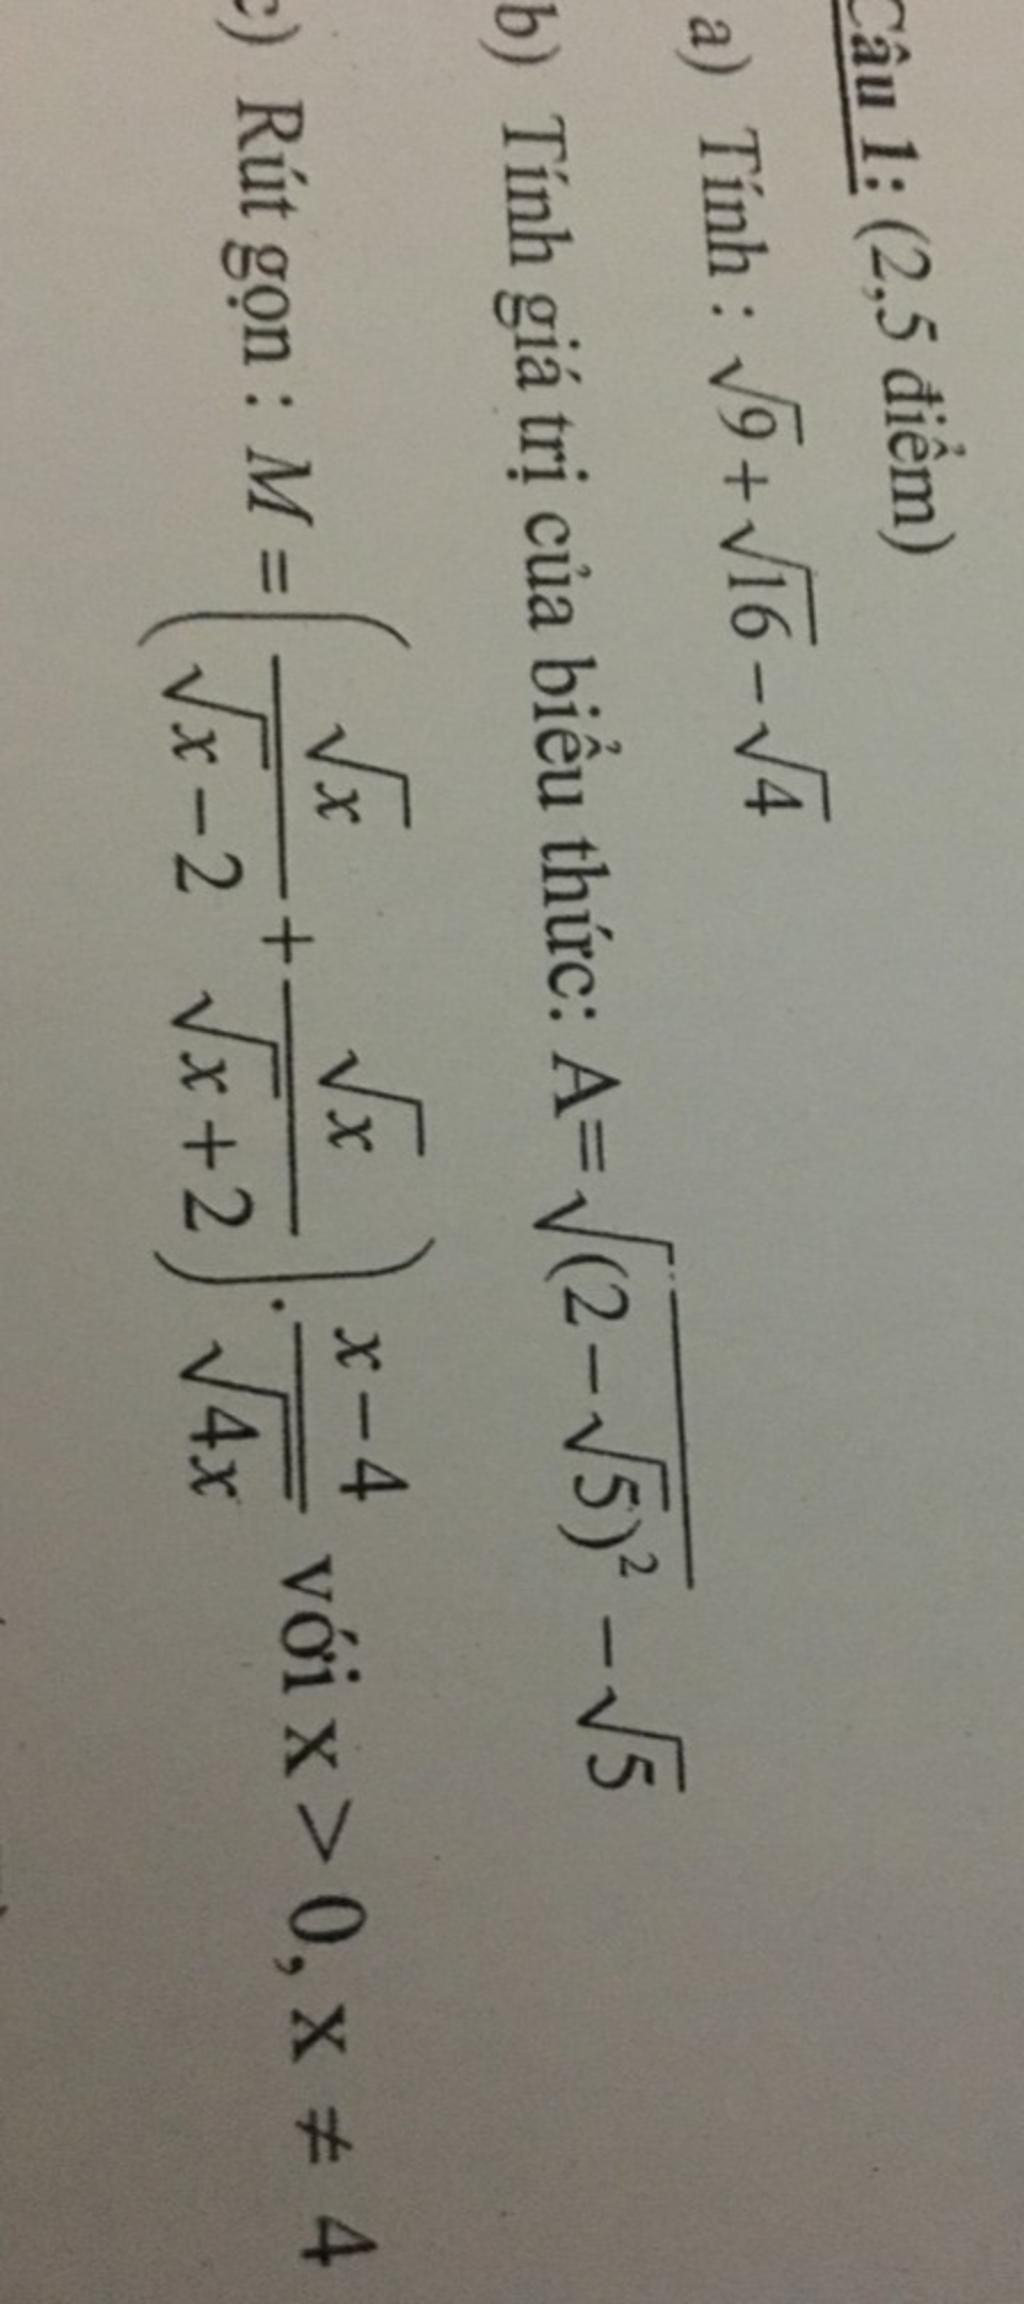 Câu 1: (2,5 điểm)
a) Tính : √9 + √16 − √4
b) Tính giá trị của biểu thức: A= √((2 − √5)²) − √5
c) Rút gọn : M = (√x/(√x − 2) + √x/(√x + 2)) . (x − 4)/√4x với x > 0, x ≠ 4